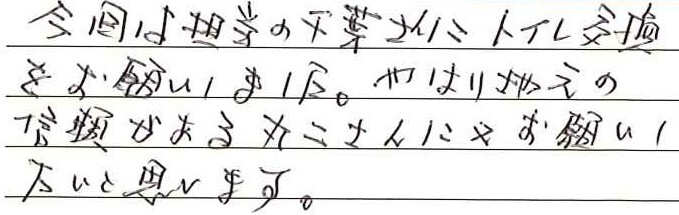 今回は担当の千葉さんにトイレ交換
をお願いしました。やはり地元の
信頼がある丸二さんに又お願いし
たいと思います。